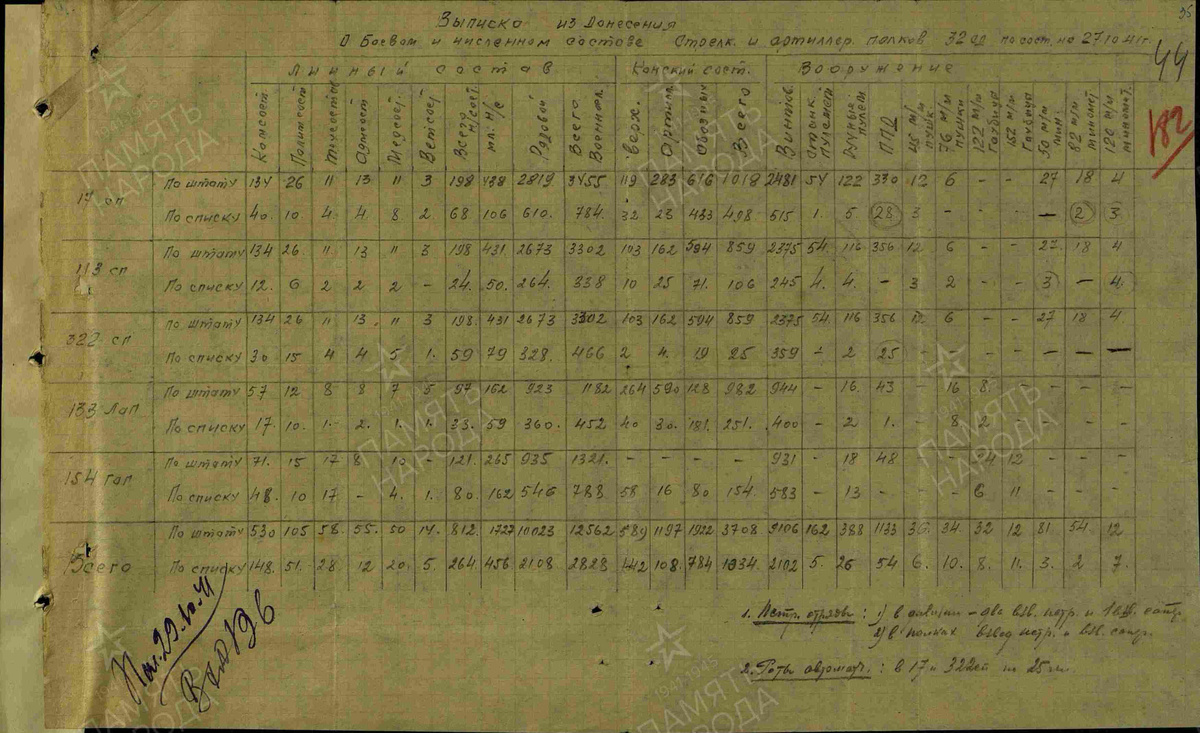 35
Выписка из Донесения
О Боевом и численном составе Стрелк. и артиллер. полков 32 сд по сост. на 27 10 41 г.
44
182
Личный состав Конский сост. Вооружение
Комсост. Политсост Техсостав Админст. Медсост. Ветсост. Всего н/сост. мл. н/с Рядовой Всего Военнол. Верх. Артил. Обозных Всего Винтов. Станк. пулемет Ручные пулем ППД 45 м/м пушк. 76 м/м пушки 122 м/м Гаубицы 152 м/м Гаубицы 50 м/м мин. 82 м/м миномет 120 м/м миномет.
17 сп По штату 134 26 11 13 11 3 198 438 2819 3455 119 283 616 1018 2481 54 122 330 12 6 - - 27 18 4
По списку 40. 10 4. 4 8 2. 68 106 610. 784. 32 23 433 498 515 1. 5 28 3 - - - — 2 3
113 сп По штату 134 26 11 13 11 3 198 431 2673 3302 103 162 594 859 2375 54. 116 356 12 6 - - 27. 18 4
По списку 12. 6 2 2 2 - 24. 50. 264. 338 10 25 71. 106 245 4. 4. - 3 2 - - 3 — 4.
322 сп По штату 134 26 11 13 11 3 198. 431 2673 3302 103 162 594 859 2375 54. 116 356 12 6 - - 27 18 4.
По списку 30 15 4 4 5 1. 59 79 328. 466 2 4. 19 25 359 - 2 25 - - - - — — —
133 Лап По штату 57 12 8 8 7 5 97 162 923 1182 264 590 128 982 944 - 16 43 - 16 8. - - - -
По списку 17. 10. 1. 2. 1. 1. 33. 59 360. 452 40 30. 181. 251. 400 - 2 1. - 8 2 - - -
154 гап По штату 71. 15 17 8 10 - 121. 265 935 1321. - - - - 931 - 18 48 - - 24 12 - - -
По списку 48. 10 17 - 4. 1. 80. 162 546 788 58 16 80 154. 583 - 13 - - 6 11 - - -
Всего По штату 530 105 58. 55. 50 14. 812. 1727 10023 12562 589 1197 1922 3708 9106 162 388 1133 36. 34. 32 12 81. 54. 12
По списку 148. 51. 28 12 20. 5. 264. 456 2108 2828 142 108. 784 1034 2102 5. 26 54 6. 10. 8. 11. 3. 2 7.
1. Истр. отряды: 1) в дивизии - два взв. истр. и 1 взв. сапр.
2) в полках взвод истр. и взв. сапр.
2. Роты автоматч.: в 17 и 322 сп по 25 чел.
Пол. 29.10.41
ПАМЯТЬ НАРОДА
1941-1945